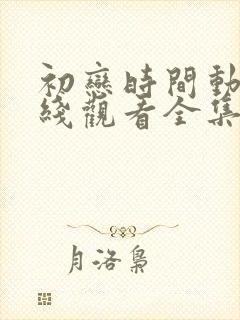 初戀時間動
綫觀看全集
月洛梟